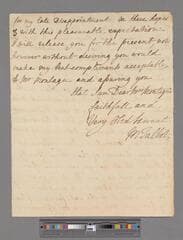 for my late disappointment. In these hopes
& with this pleasurable expectation
I will release you for the present not
however without desiring you would
make my best compliments acceptable
to Mr Montagu and assuring you
that I am Dear Mrs Montagu
faithfull and
Very Obed Servant
Talbot